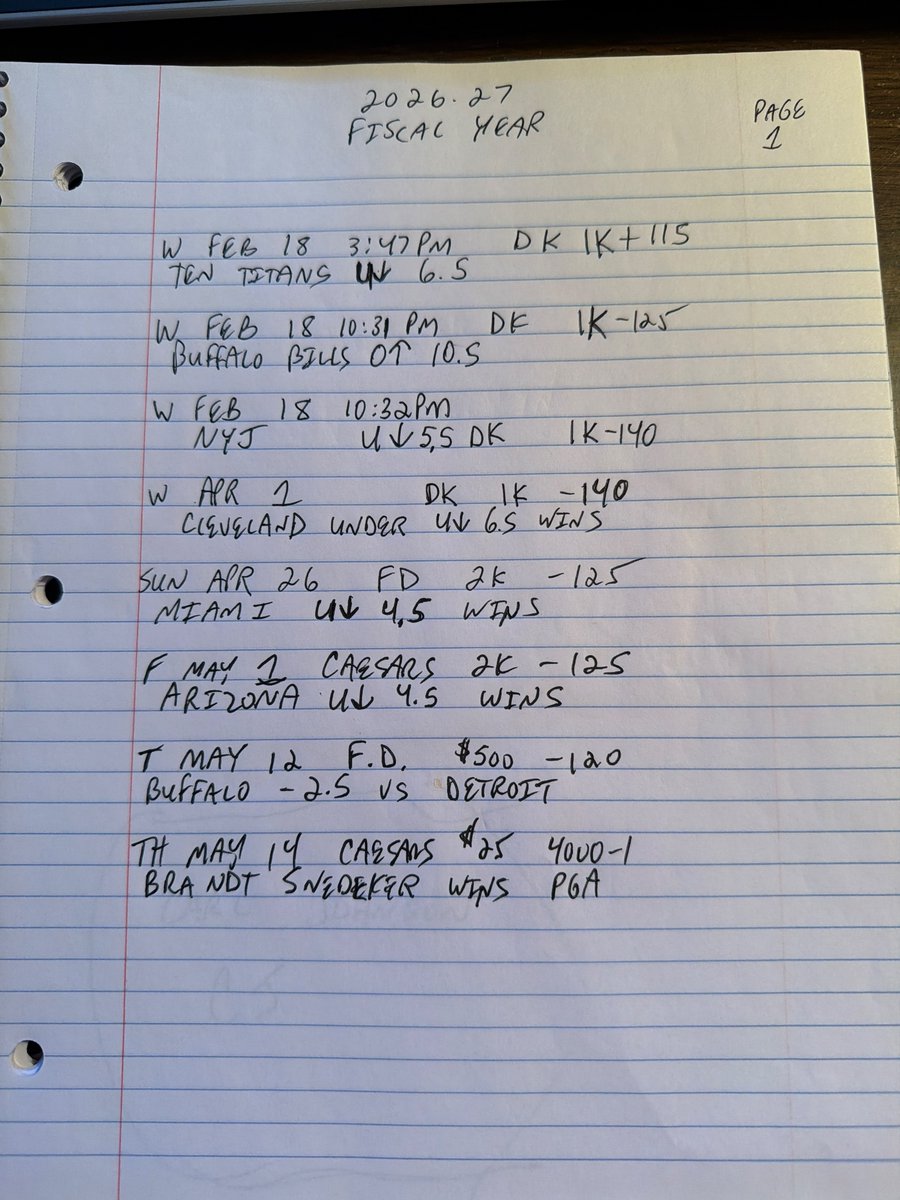 2026.27
FISCAL YEAR
PAGE
1
W FEB 18 3:47PM DK 1K+115
TEN TITANS U↓ 6.5
W FEB 18 10:31 PM DK 1K-125
BUFFALO BILLS O↑ 10.5
W FEB 18 10:32PM
NYJ U↓5,5 DK 1K-140
W APR 1 DK 1K -140
CLEVELAND UNDER U↓ 6.5 WINS
SUN APR 26 FD 2K -125
MIAMI U↓ 4,5 WINS
F MAY 1 CAESARS 2K -125
ARIZONA U↓ 4.5 WINS
T MAY 12 F.D. $500 -120
BUFFALO -2.5 VS DETROIT
TH MAY 14 CAESARS $25 4000-1
BRANDT SNEDEKER WINS PGA